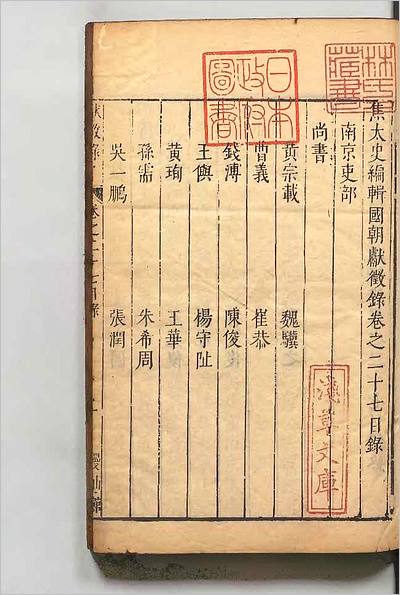 焦太史編輯國朝獻徵錄卷之二十七目錄
南京吏部
尚書
黃宗載 魏驥
曹義 崔恭
錢溥 陳俊
王㒜 楊守阯
黃珣 王華
孫需 朱希周
吳一鵬 張潤
獻徵錄 卷之二十七目錄
日本政府圖書
林氏藏書
淺草文庫